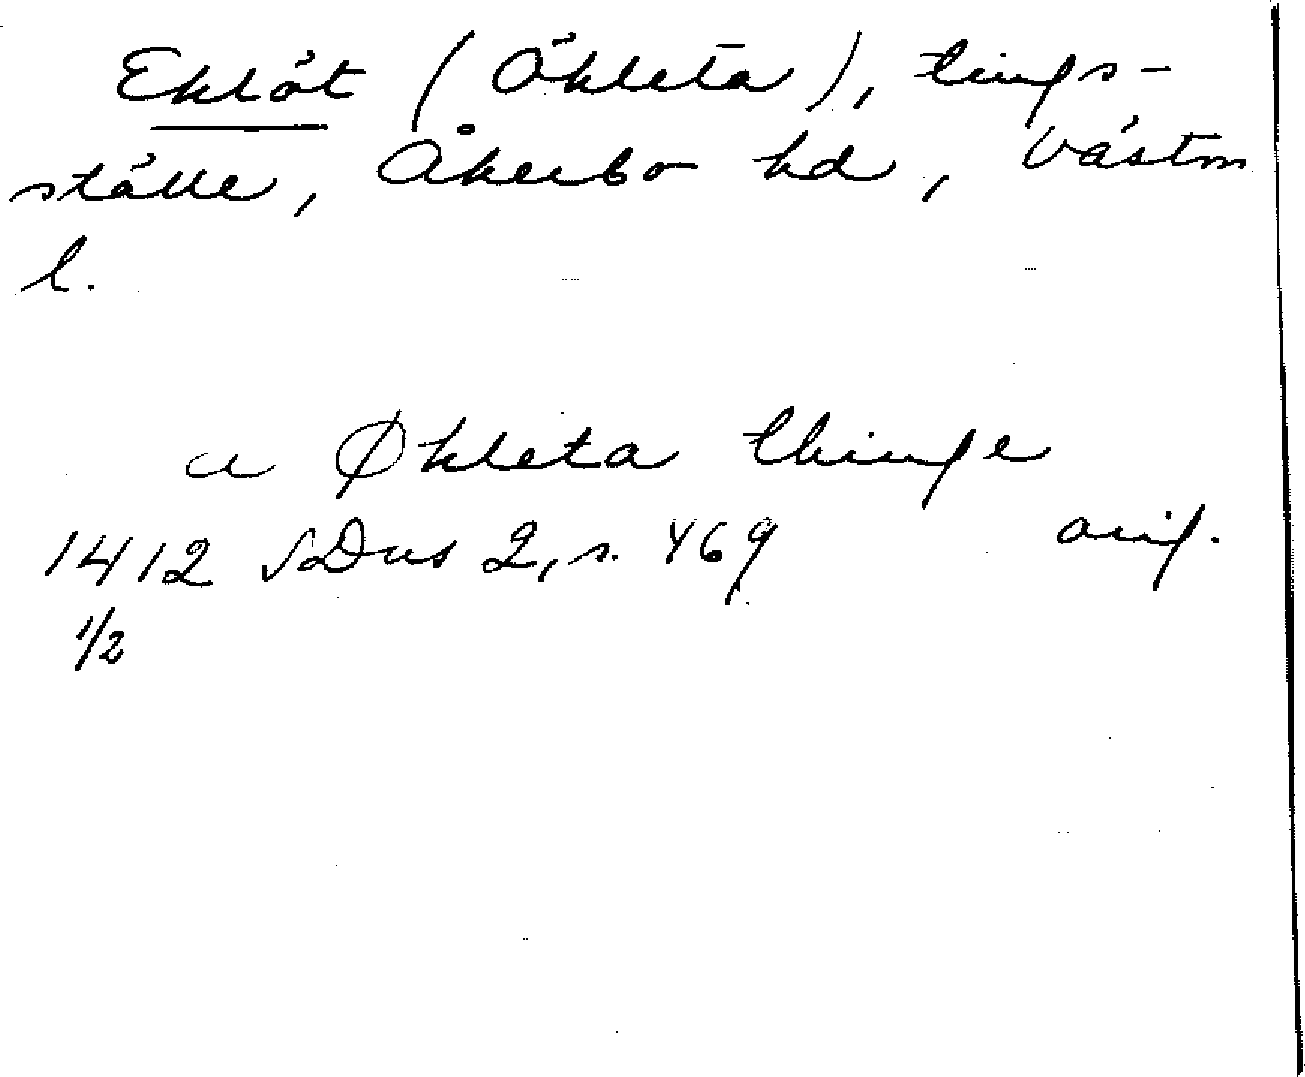 Eklöt (Ökleta), tings-
ställe, Åkerbo hd, Västm
l.
a Økleta thinge
1412 SDns 2, s. 469 orig.
1/2